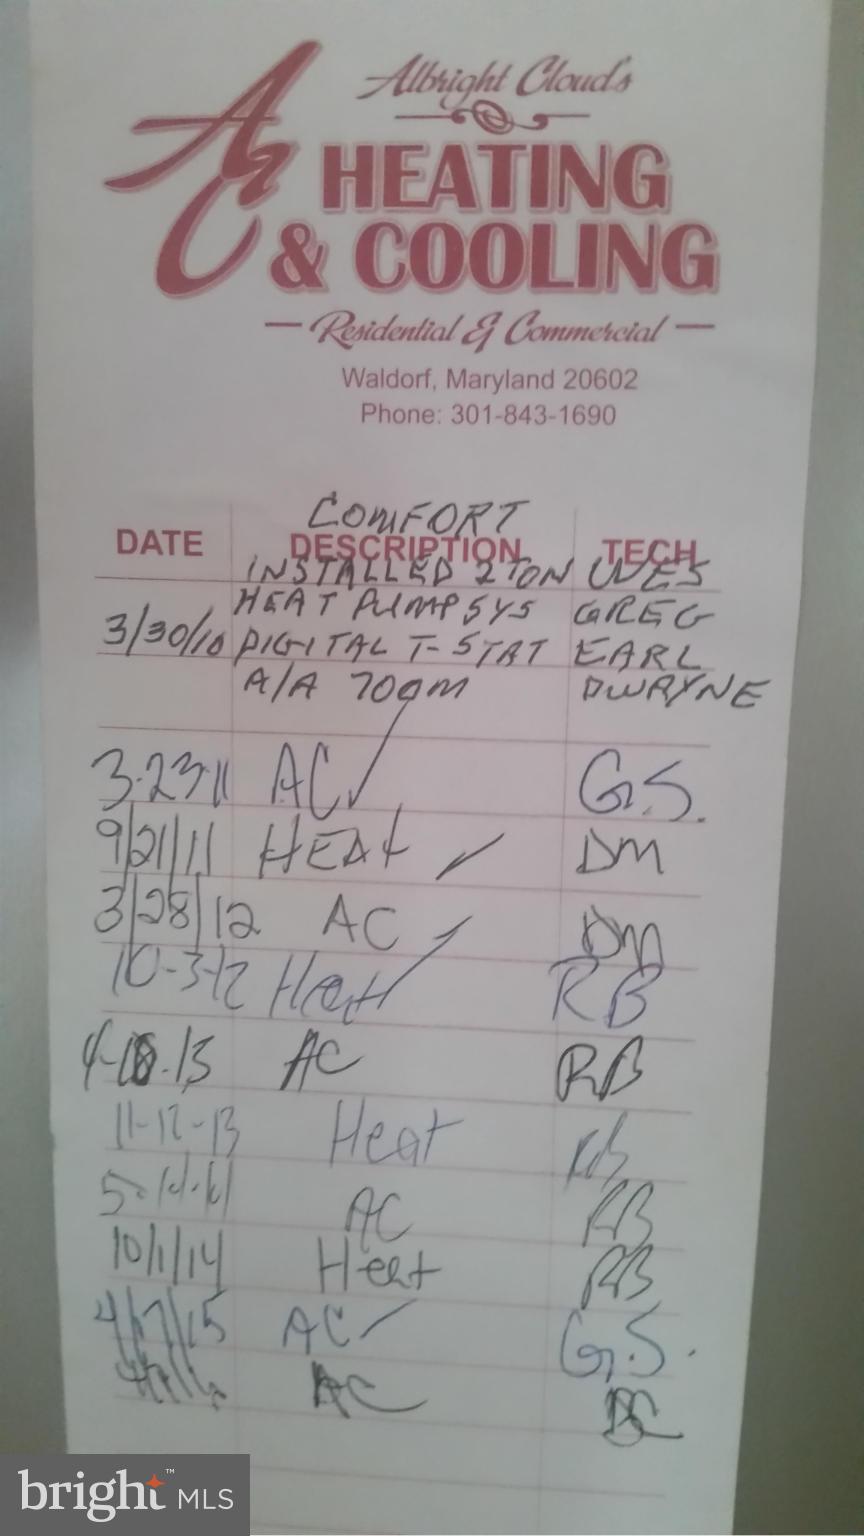 Albright Cloud's
AC HEATING
& COOLING
Residential & Commercial
Waldorf, Maryland 20602
Phone: 301-843-1690
COMFORT
DATE DESCRIPTION TECH
INSTALLED 2 TON WES
HEAT PUMP SYS GREG
3/30/10 DIGITAL T-STAT EARL
A/A 700M DWAYNE
3-23-11 AC ✓ G.S.
9/21/11 HEAT ✓ DM
3/28/12 AC ✓ DM
10-3-12 Heat RB
4-18-13 AC RB
11-12-13 Heat RB
AC RB
10/1/14 Heat RB
4/7/15 AC ✓ G.S.
AC DC
bright™ MLS